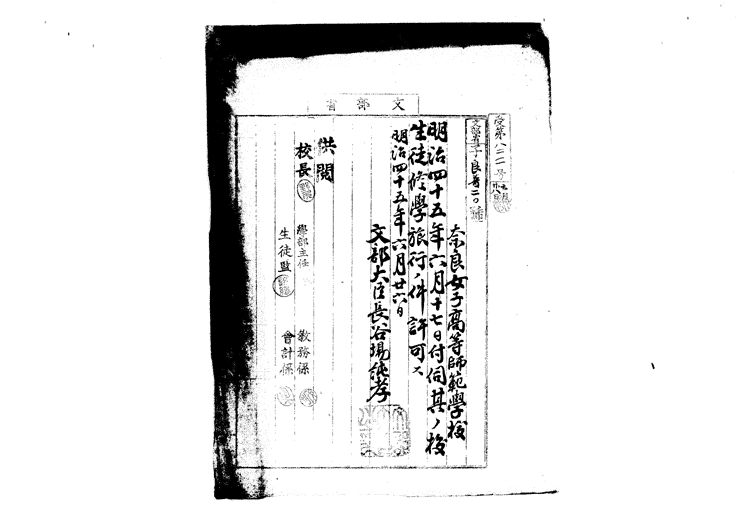 文部省
受第八二一号
奈良女子高等師範學校
明治四十五年六月十七日付伺其ノ校
生徒修學旅行ノ件許可ス
明治四十五年六月廿六日
文部大臣長谷場純孝
供閲
校長
學部主任
教務係
生徒監
會計係